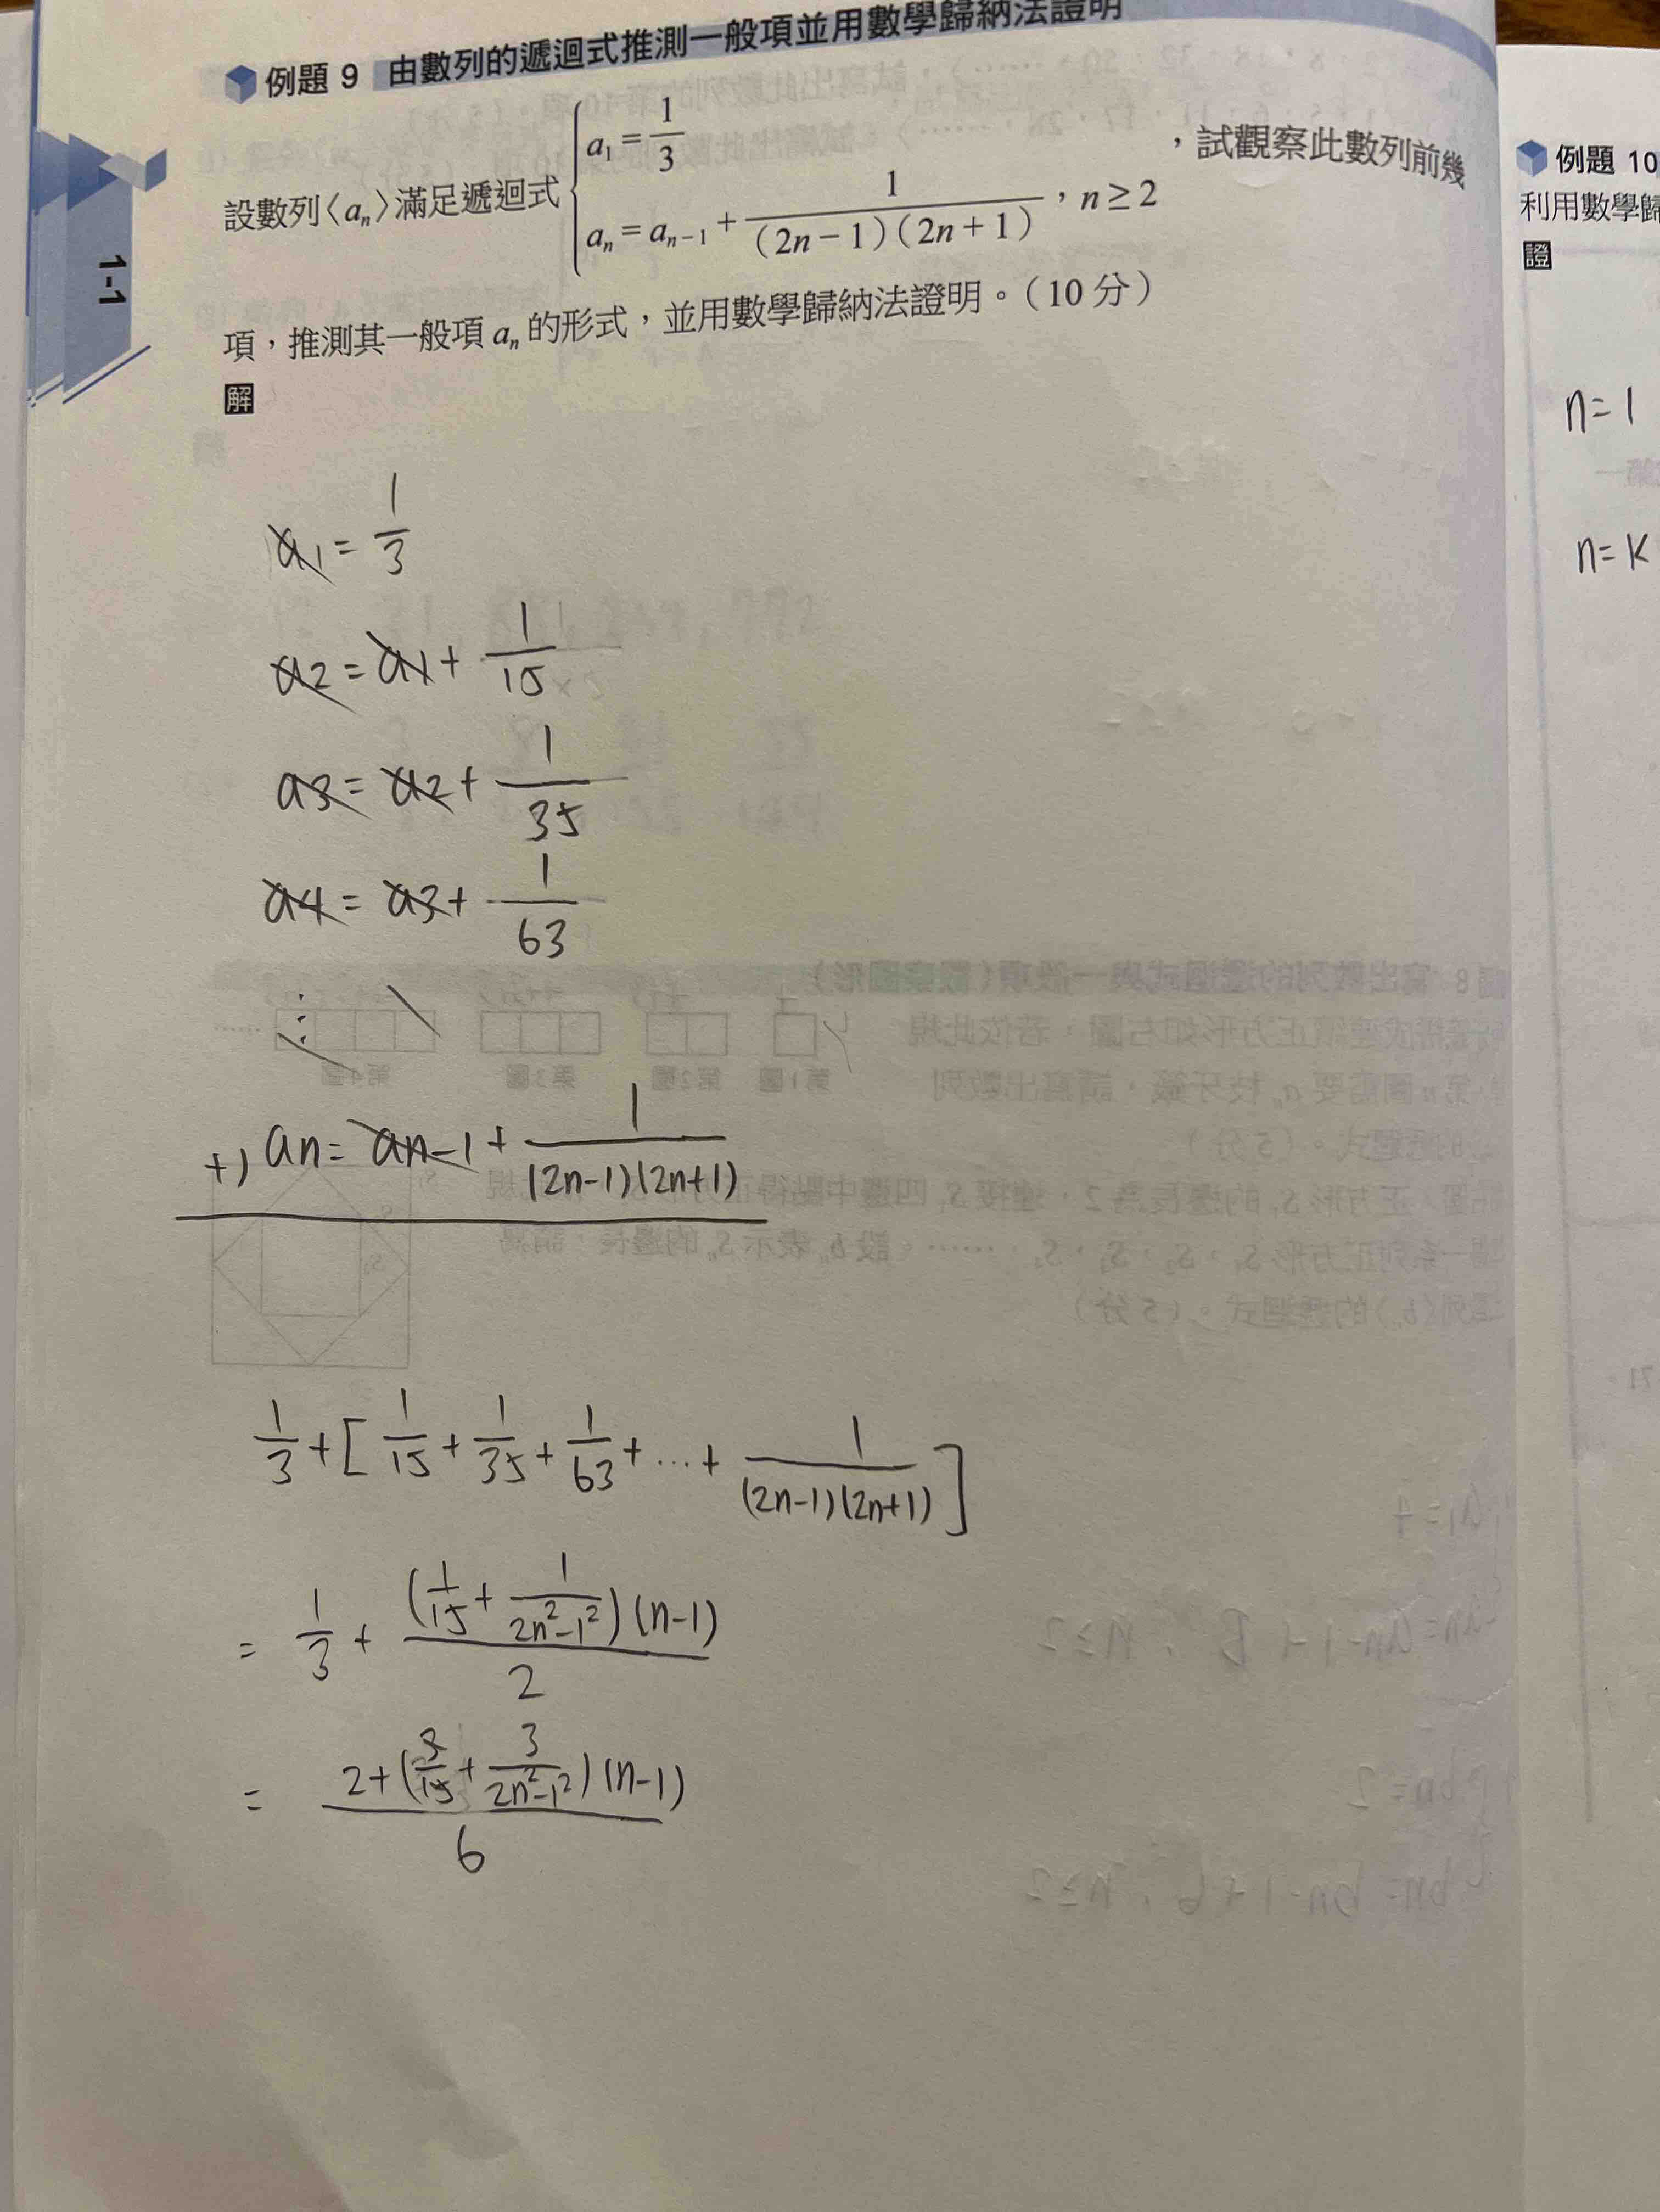 例題 9 由數列的遞迴式推測一般項並用數學歸納法證明
設數列〈aₙ〉滿足遞迴式 { a₁ = 1/3
aₙ = aₙ₋₁ + 1/(2n−1)(2n+1),n ≥ 2
,試觀察此數列前幾
項,推測其一般項 aₙ 的形式,並用數學歸納法證明。(10 分)
解
1-1
a1 = 1/3
a2 = a1 + 1/15
a3 = a2 + 1/35
a4 = a3 + 1/63
⋮
+) an = an-1 + 1/(2n-1)(2n+1)
1/3 + [ 1/15 + 1/35 + 1/63 + … + 1/(2n-1)(2n+1) ]
= 1/3 + (1/15 + 1/(2n²-1²))(n-1)/2
= 2+(3/15 + 3/(2n²-1²))(n-1)/6
例題 10
利用數學歸
證
n=1
n=k